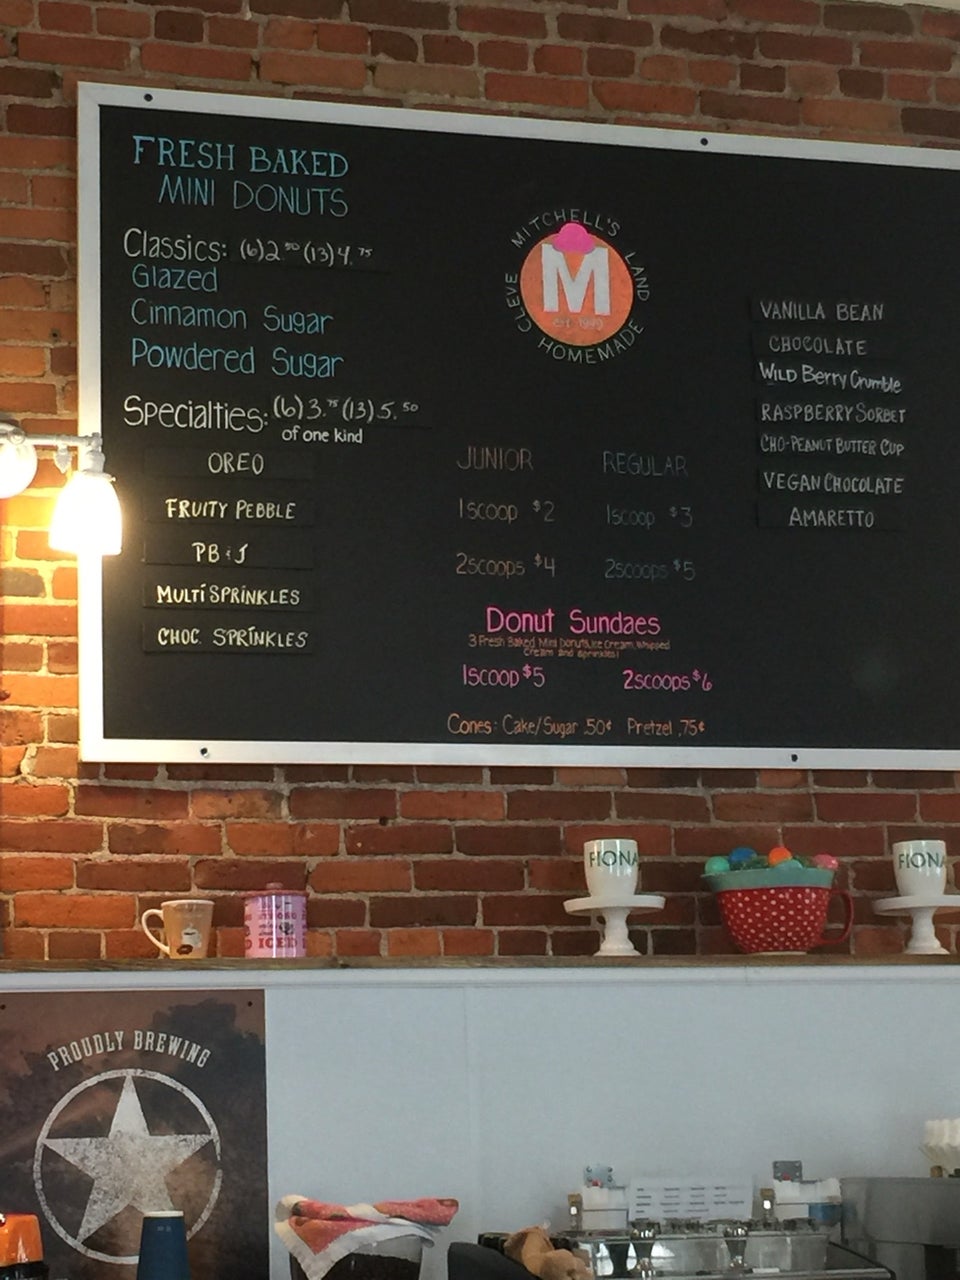 FRESH BAKED
MINI DONUTS
Classics: (6)2.50 (13)4.75
Glazed
Cinnamon Sugar
Powdered Sugar
Specialties: (6)3.75 (13)5.50
of one kind
OREO
FRUITY PEBBLE
PB & J
MULTI SPRINKLES
CHOC. SPRINKLES
MITCHELL'S
CLEVE LAND
M
EST. 1949
HOMEMADE
JUNIOR REGULAR
1scoop $2 1scoop $3
2scoops $4 2scoops $5
Donut Sundaes
3 Fresh Baked Mini Donuts, Ice Cream, Whipped
Cream and sprinkles!
1scoop $5 2scoops $6
Cones: Cake/Sugar .50¢ Pretzel .75¢
VANILLA BEAN
CHOCOLATE
Wild Berry Crumble
RASPBERRY SORBET
CHO-PEANUT BUTTER CUP
VEGAN CHOCOLATE
AMARETTO
FIONA
FIONA
ICED
PROUDLY BREWING